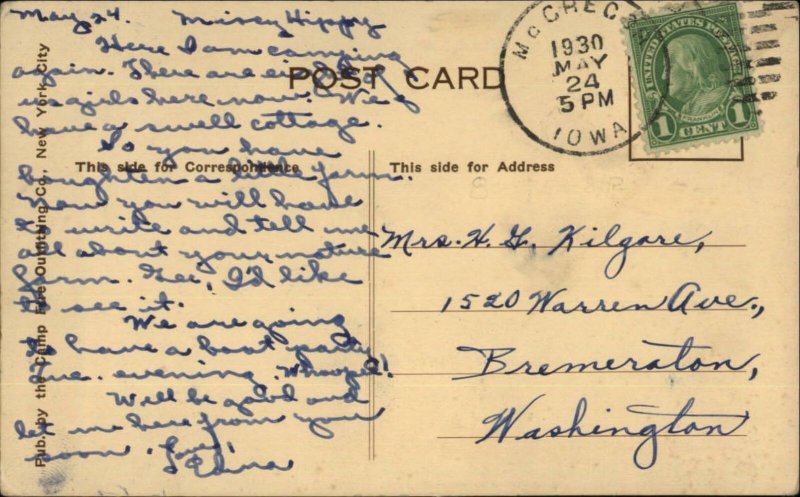 May 24. Missy Hippy
Here I am camping
again. There are eight of
us girls here now. We
have a swell cottage.
So you have
boughten a little farm.
Now you will have
to write and tell me
all about your nature
farm. Gee, I'd like
to see it.
We are going
to have a boat party
evening. Whoopee!
Will be good and
let me here from you
soon. Love,
POST CARD
This side for Correspondence
This side for Address
Pub. by the Camp Fire Outfitting Co., New York City
McGREG
1930
MAY
24
5 PM
IOWA
UNITED STATES POSTAGE
FRANKLIN
1 CENT 1
Mrs. H. G. Kilgore,
1520 Warren Ave.,
Bremeraton,
Washington